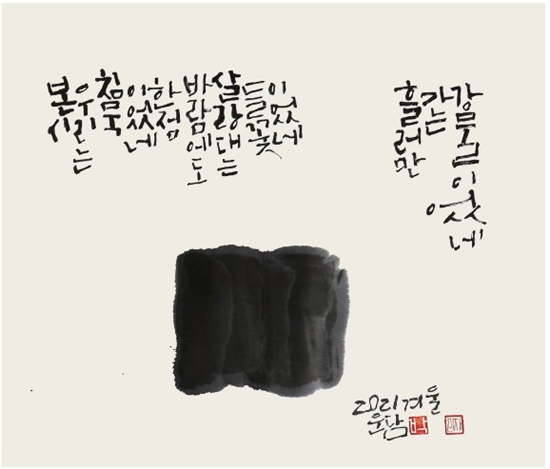 본시
우리는
침묵
이었네
한점
바람에도
살랑대는
들꽃
이었네
흘러만
가는
강물이었네
2021 겨울
운담